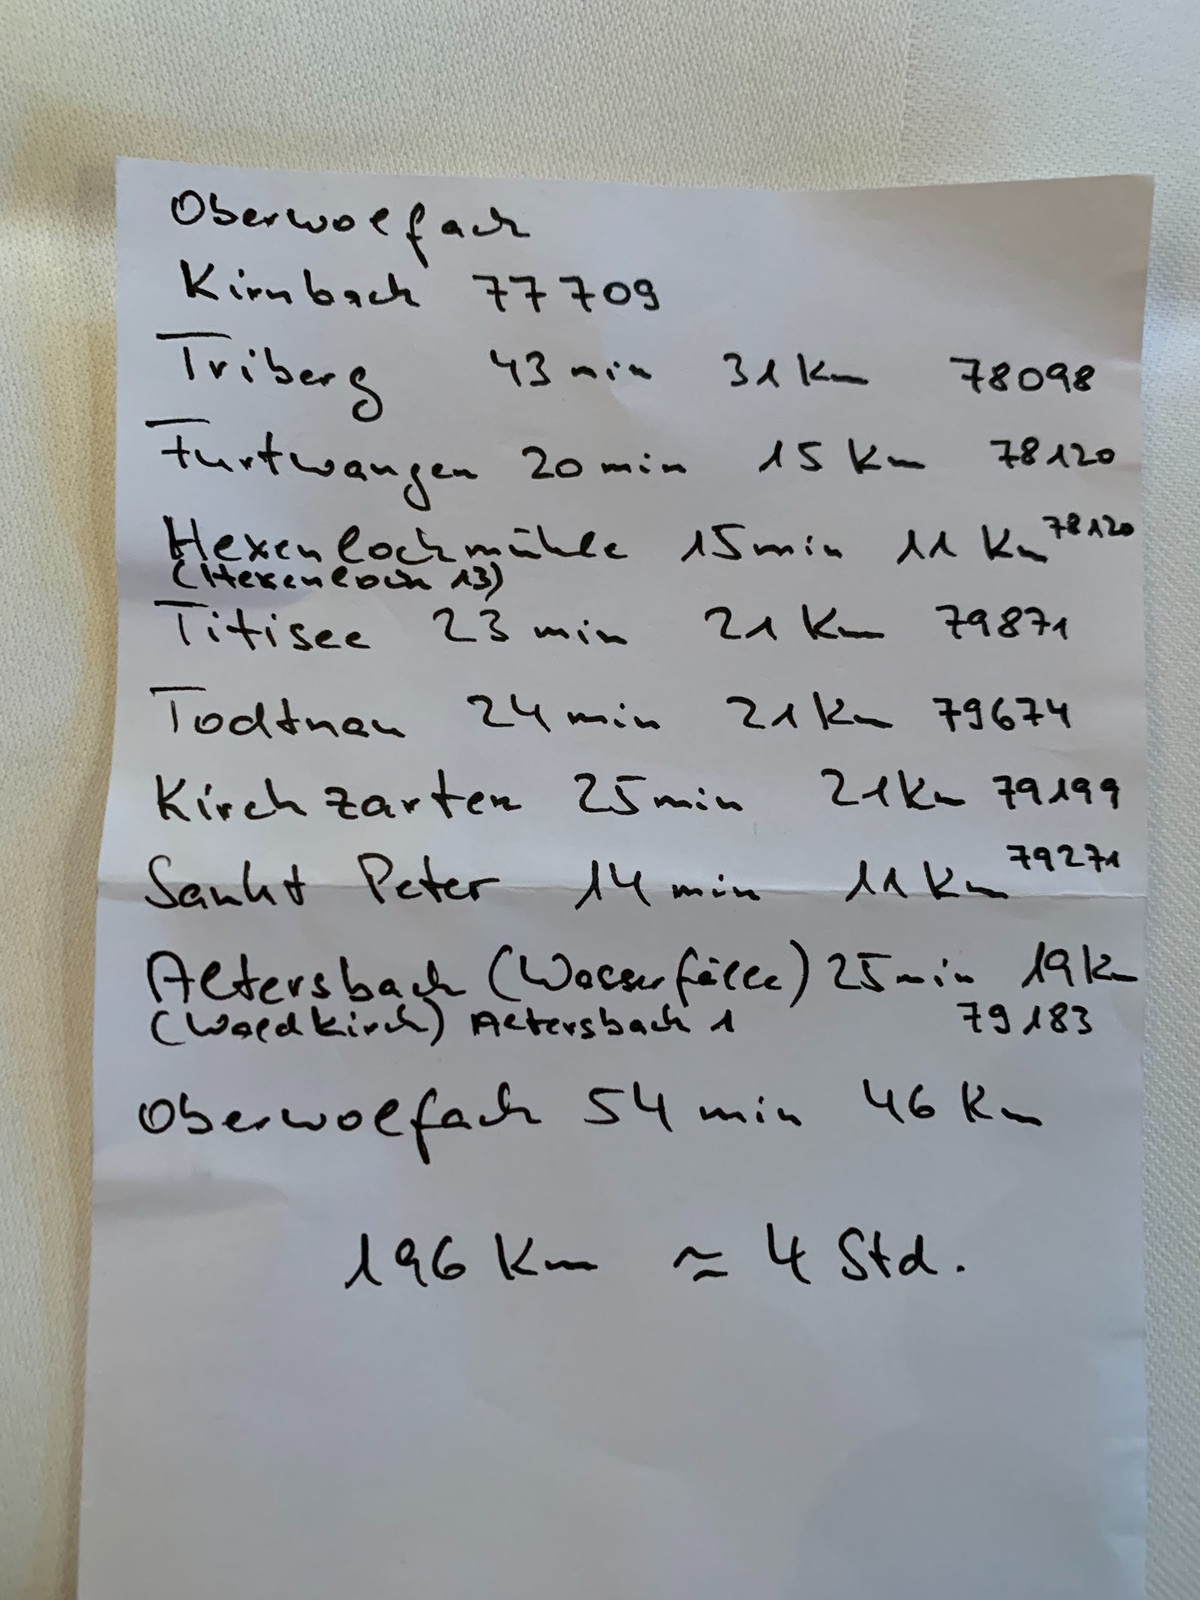 Oberwolfach
Kirnbach 77709
Triberg 43 min 31 Km 78098
Furtwangen 20 min 15 Km 78120
Hexenlochmühle 15min 11 Km 78120
(Hexenloch 13)
Titisee 23 min 21 Km 79871
Todtnau 24 min 21 Km 79674
Kirchzarten 25 min 21 Km 79199
Sankt Peter 14 min 11 Km 79271
Altersbach (Wasserfälle) 25 min 19 Km
(Waldkirch) Altersbach 1 79183
Oberwolfach 54 min 46 Km
196 Km ≈ 4 Std.